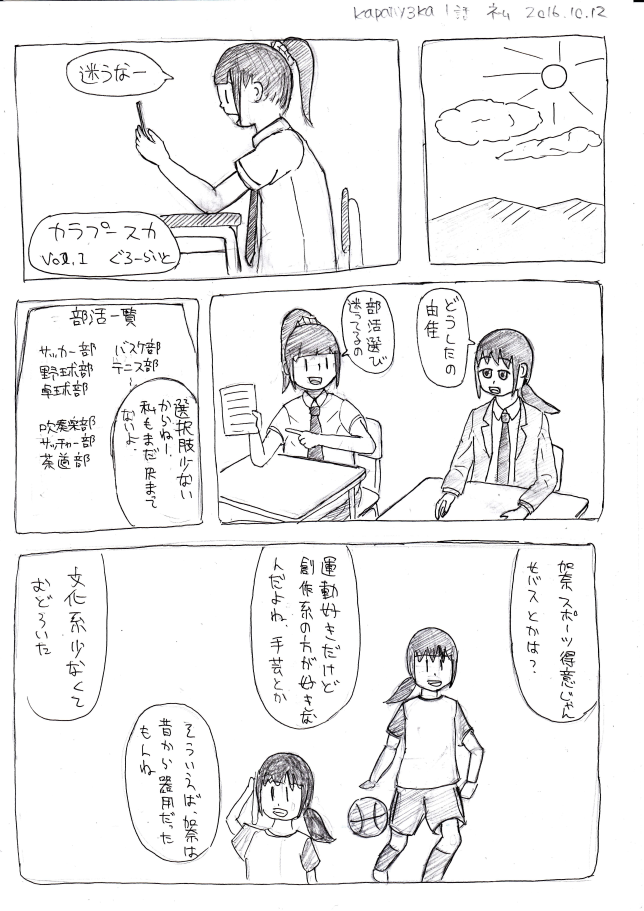 kapocıy3ka 1話 ネム 2016.10.12
迷うなー
カラプースカ
Vol.1 ぐろーらいと
どうしたの
由佳
部活選び
迷ってるの
部活一覧
サッカー部 バスケ部
野球部 テニス部
卓球部
吹奏楽部
サッチャー部
茶道部
選択肢少ない
からねー。
私もまだ決まって
ないよ。
加奈スポーツ得意じゃん
女バスとかは？
運動好きだけど
創作系の方が好きな
んだよね。手芸とか
そういえば、加奈は
昔から器用だった
もんね
文化系少なくて
おどろいた